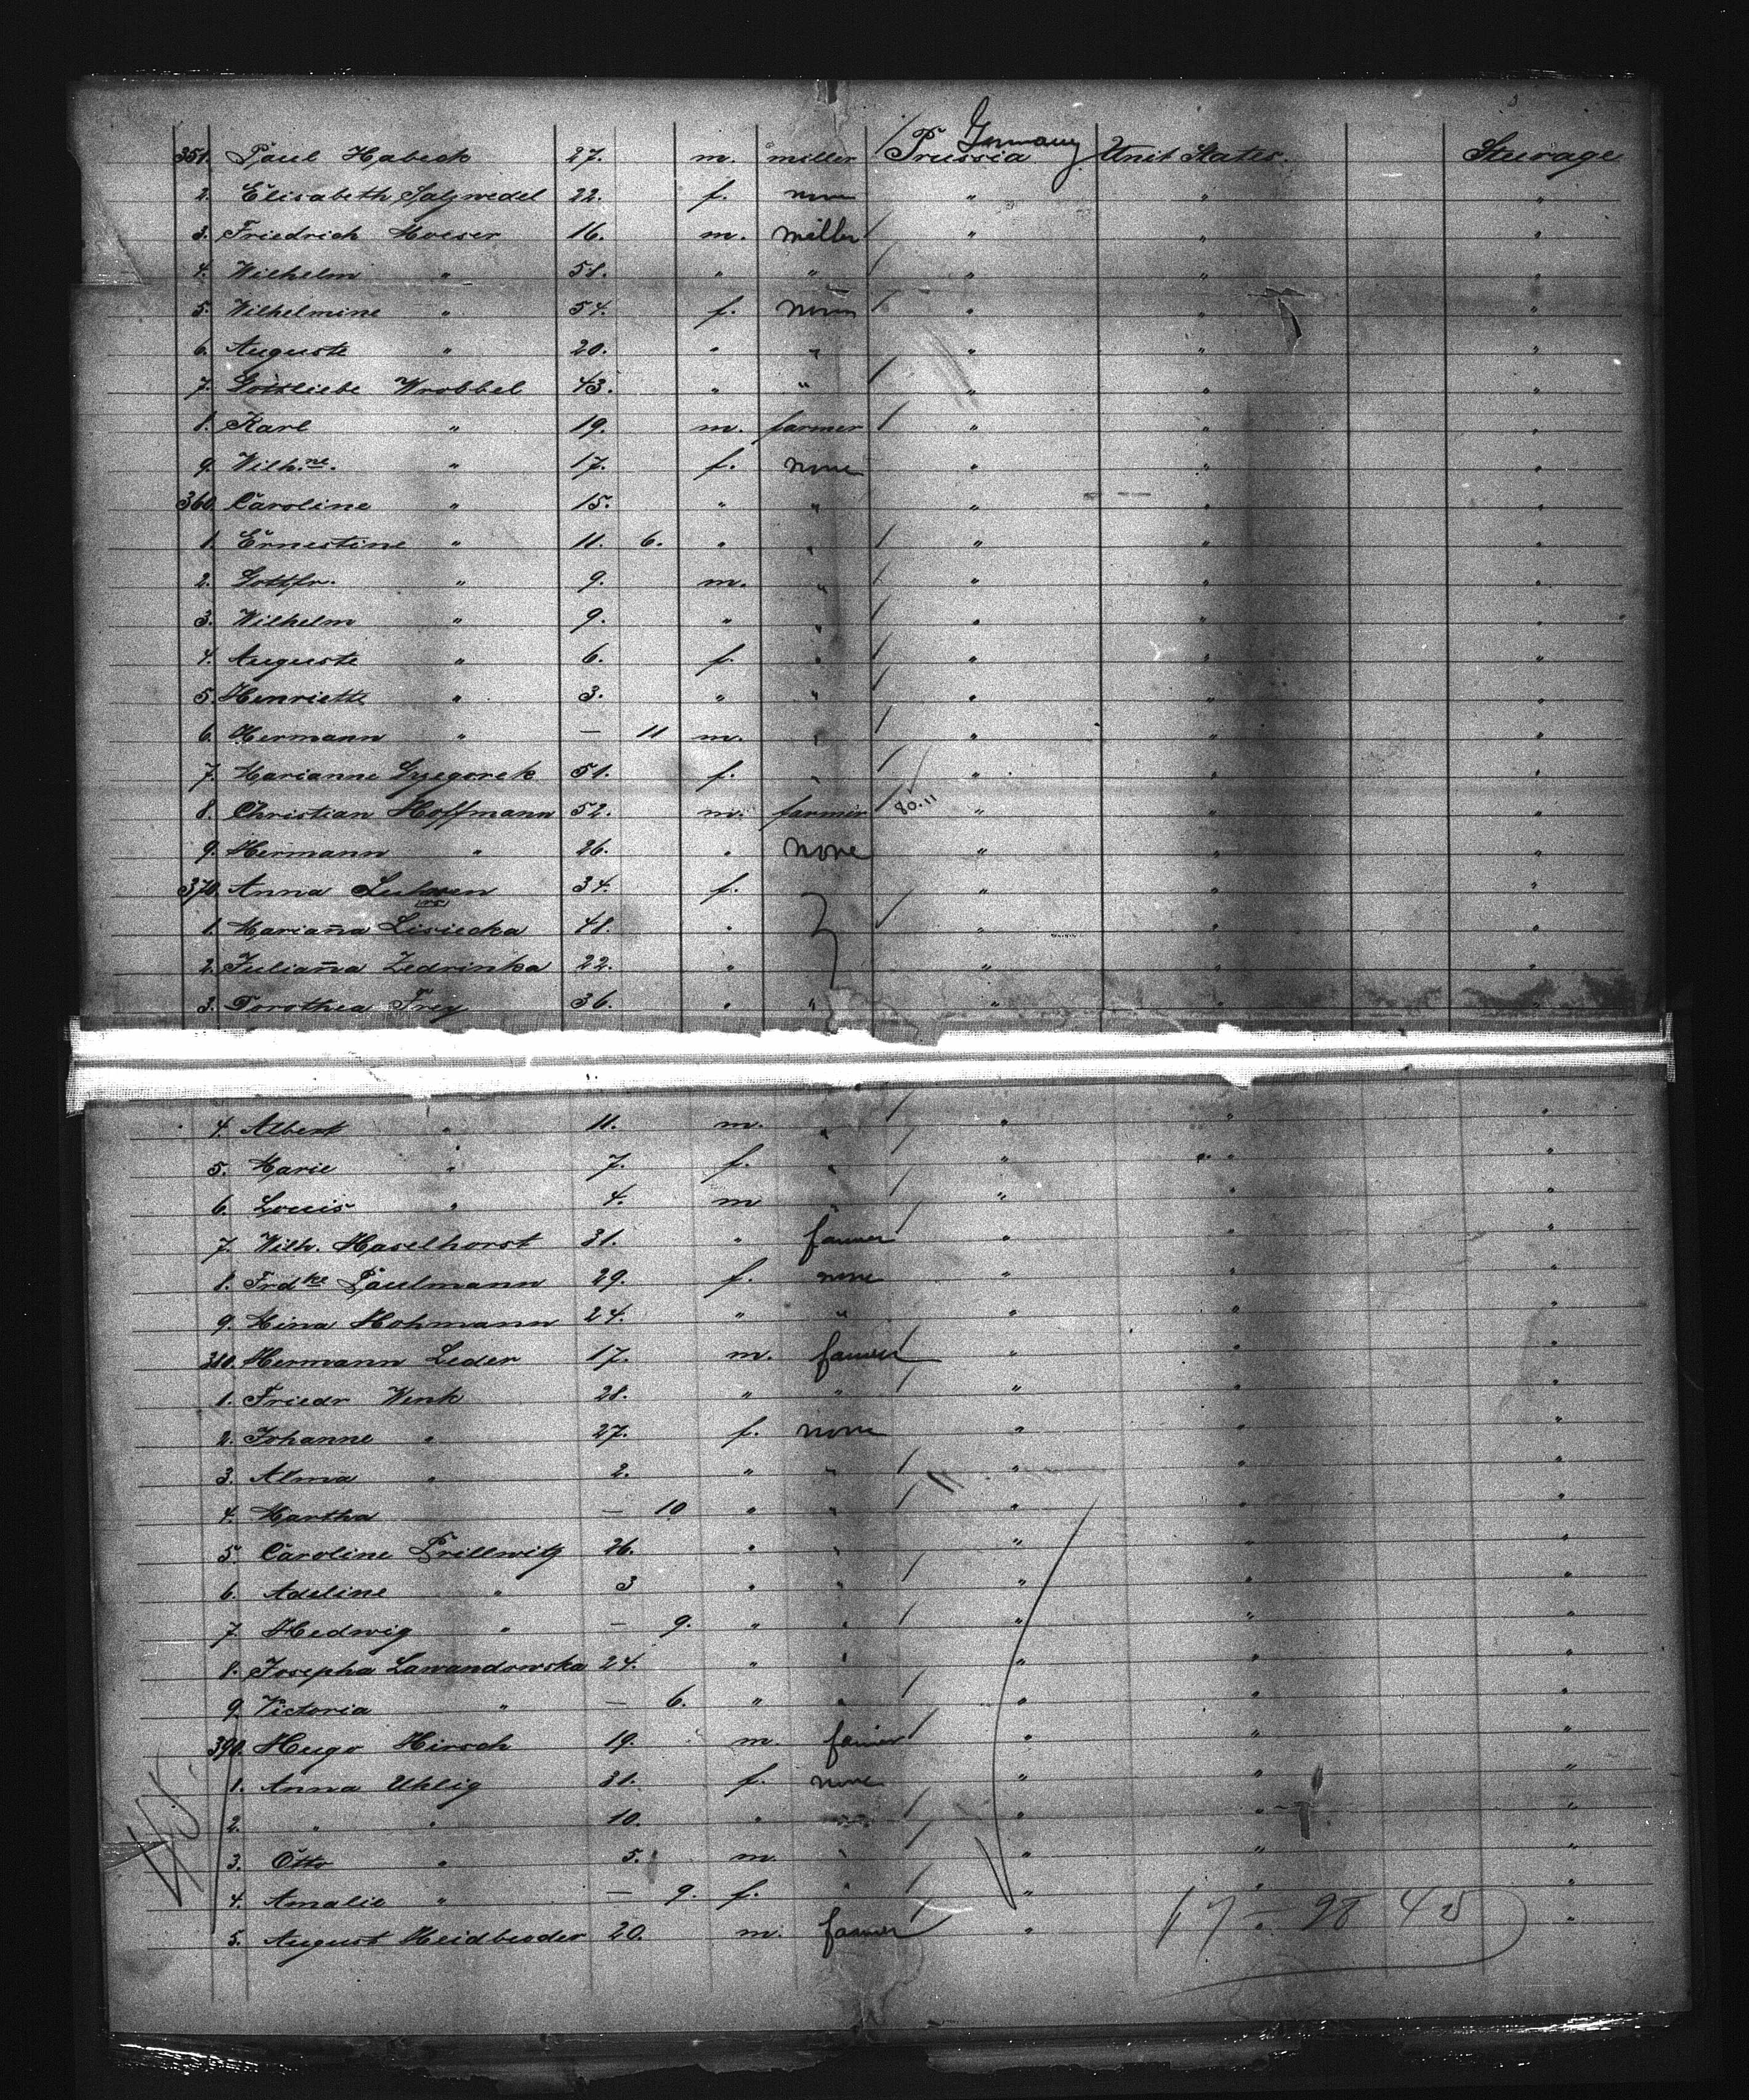 Germany
351. Paul Habeck 27. m. miller Prussia Unit States. Steerage
2. Elisabeth Salzwedel 22. f. none " " "
3. Friedrich Moeser 16. m. miller " " "
4. Wilhelm " 58. " " " " "
5. Wilhelmine " 54. f. none " " "
6. Auguste " 20. " " " " "
7. Gottliebe Wrobbel 43. " " " " "
8. Karl " 19. m. farmer " " "
9. Wilh.ne. " 17. f. none " " "
360. Caroline " 15. " " " " "
1. Ernestine " 11. 6. " " " " "
2. Gottfr. " 9. m. " " " "
3. Wilhelm " 9. " " " " "
4. Auguste " 6. f. " " " "
5. Henriette " 3. " " " " "
6. Hermann " — 11 m. " " " "
7. Marianne Gzegorek 51. f. " " " "
8. Christian Hoffmann 52. m. farmer 80.11 " " "
9. Hermann " 26. " none " " "
370. Anna 34. f. " " "
1. Mariana Lisiecka 48. " " " "
2. Juliana Zedrinka 22. " " " "
3. Dorothea Frey 36. " " " " "
4. Albert " 11. m. " " " "
5. Marie " 7. f. " " " "
6. Louis " 4. m " " " "
7. Wilh. Haselhorst 31. " farmer " " "
8. Frdke Paulmann 29. f. none " " "
9. Mina Hohmann 24. " " " " "
380. Hermann Leder 17. m. farmer " " "
1. Friedr Wenk 28. " " " " "
2. Johanne " 27. f. none " " "
3. Alma " 2. " " " " "
4. Martha — 10 " " " " "
5. Caroline Prillwitz 26. " " " " "
6. Adeline " 3 " " " " "
7. Hedwig " — 9. " " " " "
8. Josepha Lawandowska 24. " " " " "
9. Victoria " — 6. " " " " "
390. Hugo Hirsch 19. m. farmer " " "
1. Anna Uhlig 31. f. none " " "
2. " " 10. " " " "
3. Otto " 5. m. " " " "
4. Amalie " — 9. f. " " " "
5. August Heidbreder 20. m. farmer " " "